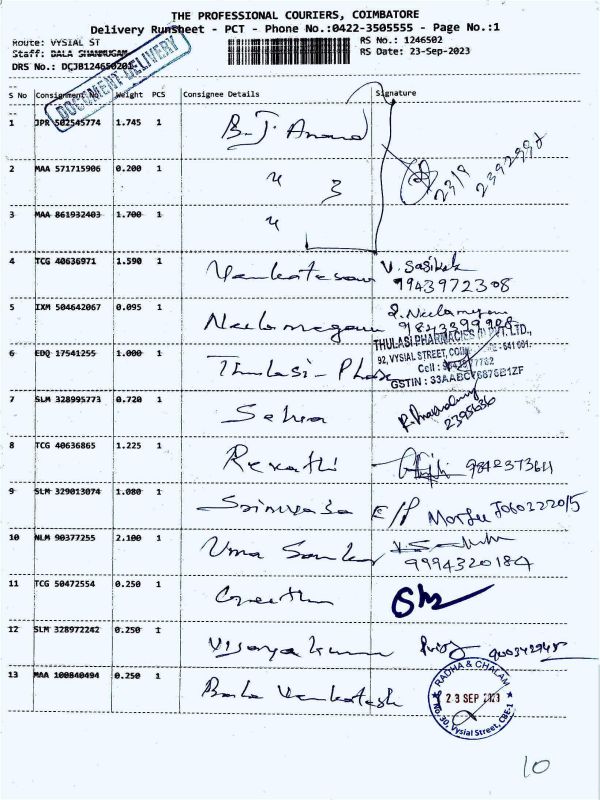 THE PROFESSIONAL COURIERS, COIMBATORE
Delivery Runsheet - PCT - Phone No.:0422-3505555 - Page No.:1
Route: VYSIAL ST RS No.: 1246502
Staff: BALA SHANMUGAM RS Date: 23-Sep-2023
DRS No.: DCJB124650201
DOCUMENT DELIVERY
S No Consignment No Weight PCS Consignee Details Signature
1 JPR 502545774 1.745 1 B.J. Anand
2 MAA 571715906 0.200 1 " 3 23/9 2392998
3 MAA 861932403 1.700 1 "
4 TCG 40636971 1.590 1 Venkatesan V. Sasikala
9943972308
5 IXM 504642067 0.095 1 Neelamegam
THULASI PHARMACIES (I) PVT. LTD.,
92, VYSIAL STREET, 641 001.
6 EDQ 17541255 1.000 1 Thulasi - Phar
Cell :
GSTIN : 33AABCT6876B1ZF
7 SLM 328995773 0.720 1 Selva 2395686
8 TCG 40636865 1.225 1 Revathi 9842373611
9 SLM 329013074 1.080 1 Srinivasa
10 NLM 90377255 2.100 1 Uma Sankar
9994320184
11 TCG 50472554 0.250 1 Geetha
12 SLM 328972242 0.250 1 Vijayakumar
13 MAA 100840494 0.250 1 Bala Venkatesh
RADHA & CHALAM
23 SEP 2023
No. 30, Vysial Street, CBE-1
10